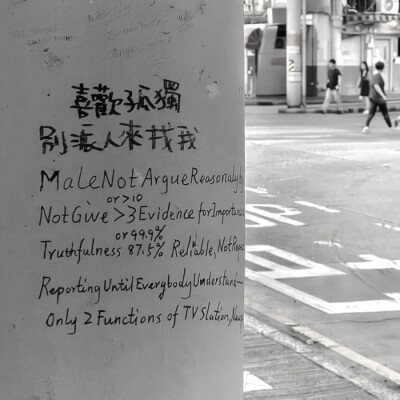 喜歡孤獨
別派人來找我
MaleNotArgueReasonably
or >10
NotGive >3 Evidence for Importanc
or 99.9%
Truthfulness 87.5% Reliable, NotRepea
Reporting Until Everybody Understand—
Only 2 Functions of TV Station,